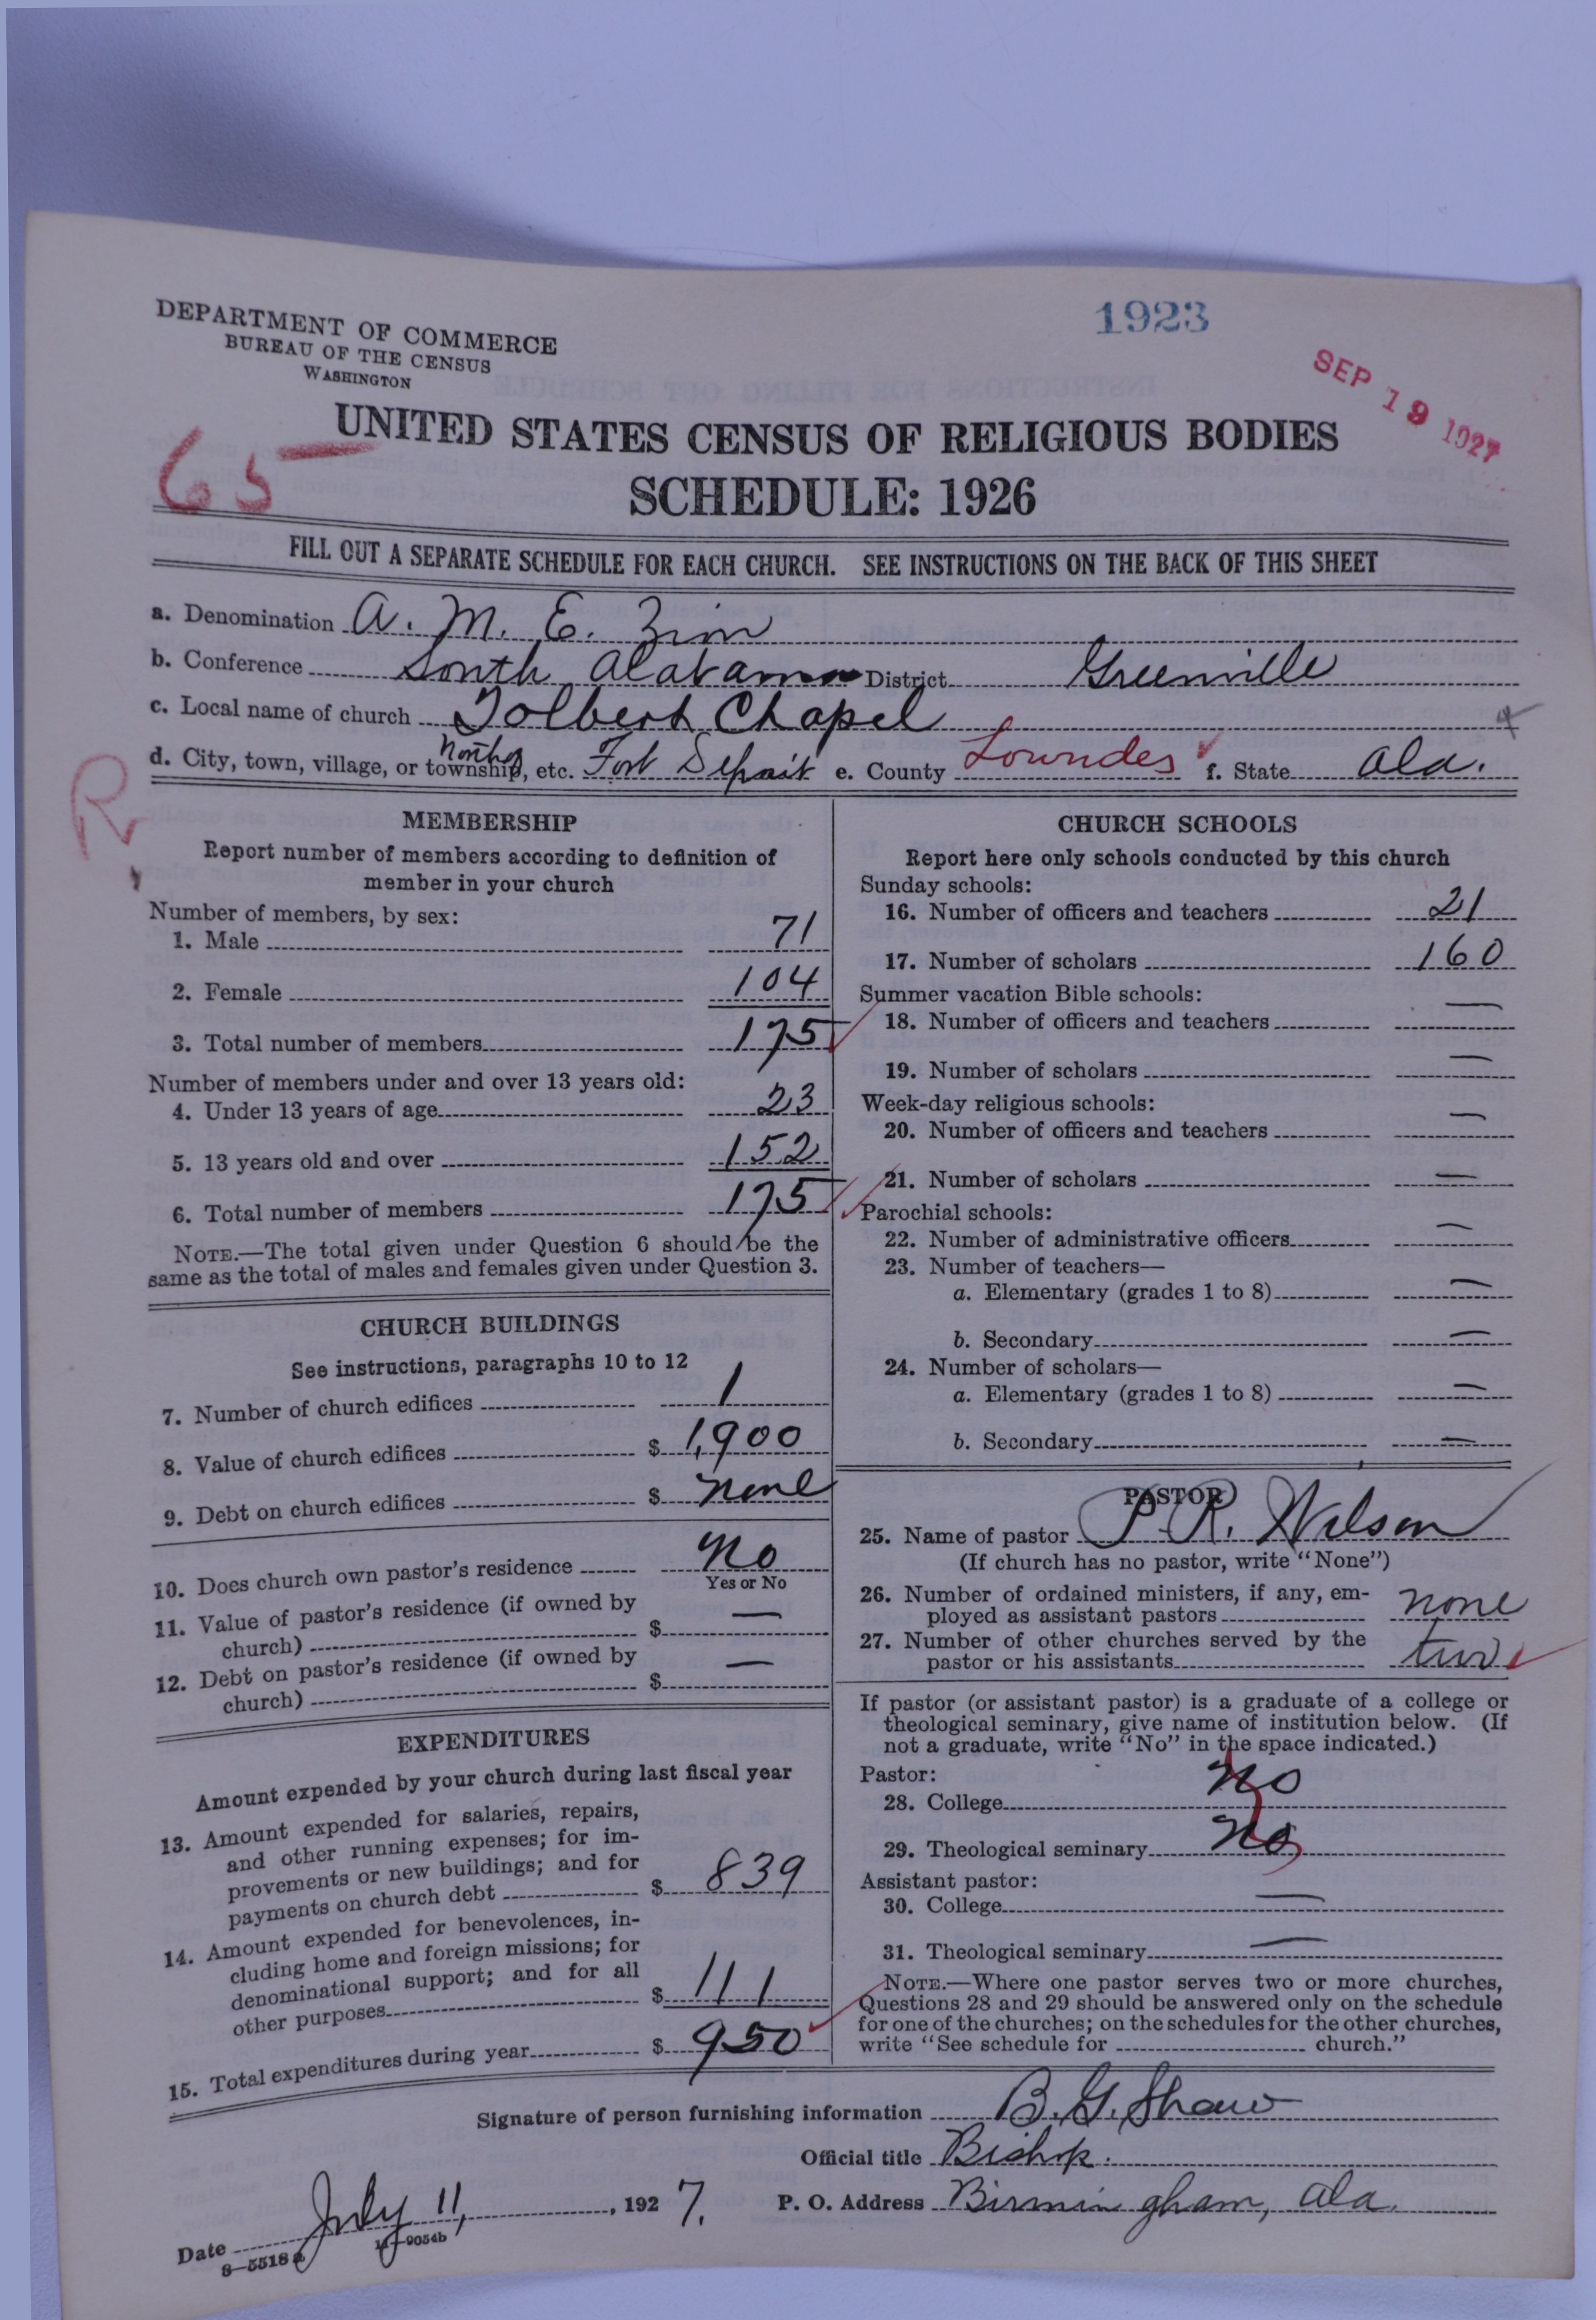 1923
DEPARTMENT OF COMMERCE
BUREAU OF THE CENSUS
WASHINGTON
SEP 19 1927
UNITED STATES CENSUS OF RELIGIOUS BODIES
65
SCHEDULE: 1926
FILL OUT A SEPARATE SCHEDULE FOR EACH CHURCH. SEE INSTRUCTIONS ON THE BACK OF THIS SHEET
a. Denomination A. M. E. Zion
b. Conference South Alabama District Greenville
c. Local name of church Tolbert Chapel
d. City, town, village, or township, etc. North of Fort Deposit e. County Lowndes f. State Ala.
R
MEMBERSHIP
Report number of members according to definition of
member in your church
Number of members, by sex:
1. Male 71
2. Female 104
3. Total number of members 175
Number of members under and over 13 years old:
4. Under 13 years of age 23
5. 13 years old and over 152
6. Total number of members 175
NOTE.—The total given under Question 6 should be the
same as the total of males and females given under Question 3.
CHURCH BUILDINGS
See instructions, paragraphs 10 to 12
7. Number of church edifices 1
8. Value of church edifices $ 1,900
9. Debt on church edifices $ none
10. Does church own pastor's residence No
Yes or No
11. Value of pastor's residence (if owned by
church) $ —
12. Debt on pastor's residence (if owned by
church) $ —
EXPENDITURES
Amount expended by your church during last fiscal year
13. Amount expended for salaries, repairs,
and other running expenses; for im-
provements or new buildings; and for
payments on church debt $ 839
14. Amount expended for benevolences, in-
cluding home and foreign missions; for
denominational support; and for all
other purposes $ 111
15. Total expenditures during year $ 950
CHURCH SCHOOLS
Report here only schools conducted by this church
Sunday schools:
16. Number of officers and teachers 21
17. Number of scholars 160
Summer vacation Bible schools:
18. Number of officers and teachers —
19. Number of scholars —
Week-day religious schools:
20. Number of officers and teachers —
21. Number of scholars —
Parochial schools:
22. Number of administrative officers —
23. Number of teachers—
a. Elementary (grades 1 to 8) —
b. Secondary —
24. Number of scholars—
a. Elementary (grades 1 to 8) —
b. Secondary —
PASTOR
25. Name of pastor P. R. Wilson
(If church has no pastor, write "None")
26. Number of ordained ministers, if any, em-
ployed as assistant pastors none
27. Number of other churches served by the
pastor or his assistants two
If pastor (or assistant pastor) is a graduate of a college or
theological seminary, give name of institution below. (If
not a graduate, write "No" in the space indicated.)
Pastor:
28. College No
29. Theological seminary No
Assistant pastor:
30. College —
31. Theological seminary —
NOTE.—Where one pastor serves two or more churches,
Questions 28 and 29 should be answered only on the schedule
for one of the churches; on the schedules for the other churches,
write "See schedule for church."
Signature of person furnishing information B. G. Shaw
Official title Bishop.
Date July 11, 1927. P. O. Address Birmingham, Ala.
8—5518a 11—9054b